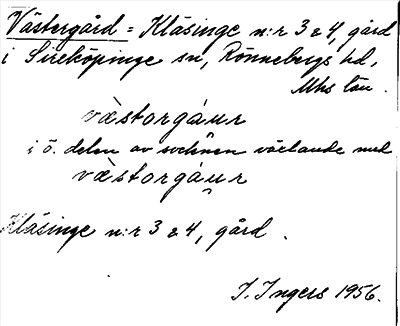 Västergård = Klåsinge n:r 3 & 4, gård
i Sireköpinge sn, Rönnebergs hd,
Mhs län.
væstorgáur
i ö. delen av socknen växlande med
væstorgáu̯r
Klåsinge n:r 3 & 4, gård.
I. Ingers 1956.